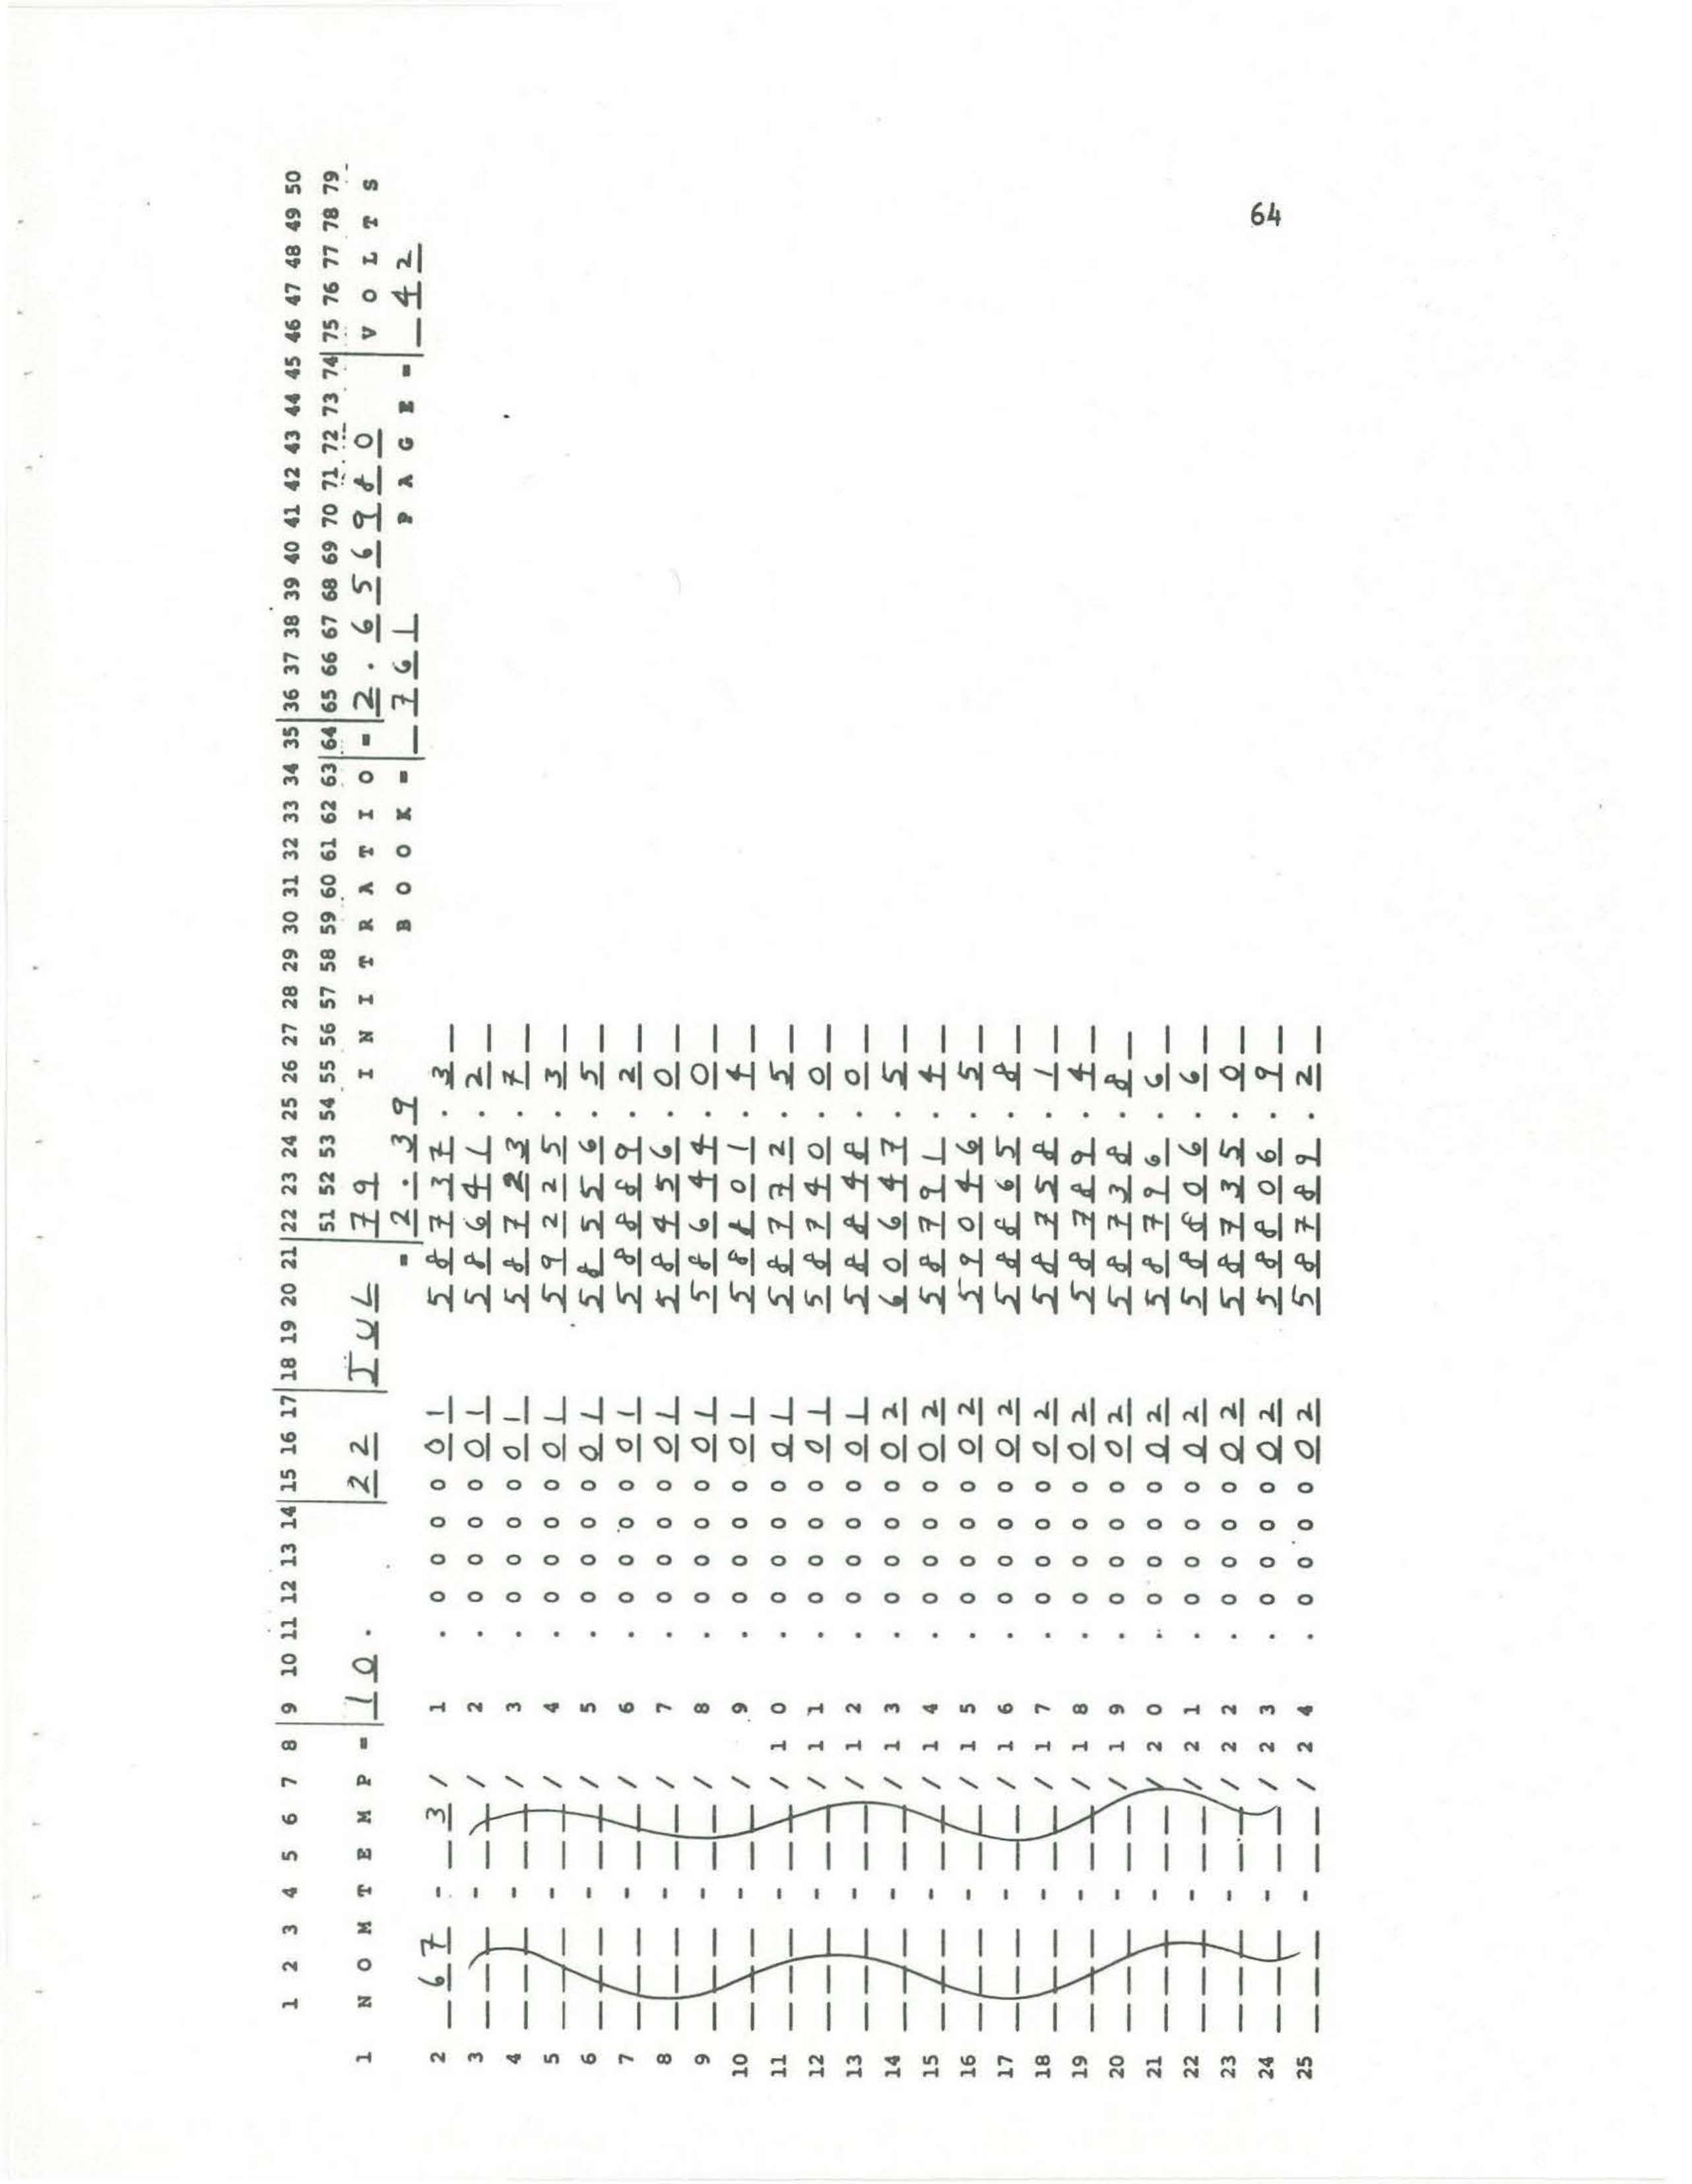 1 2 3 4 5 6 7 8 9 10 11 12 13 14 15 16 17 18 19 20 21 22 23 24 25 26 27 28 29 30 31 32 33 34 35 36 37 38 39 40 41 42 43 44 45 46 47 48 49 50
51 52 53 54 55 56 57 58 59 60 61 62 63 64 65 66 67 68 69 70 71 72 73 74 75 76 77 78 79
1 N O M T E M P = 1 0 . 2 2 J U L 7 9 I N I T R A T I O = 2 . 6 5 6 9 8 0 V O L T S
= 2 . 3 9 B O O K = 7 6 1 P A G E = 4 2
2 6 7 - 3 / 1 . 0 0 0 0 0 1 5 8 7 3 7 . 3
3 - / 2 . 0 0 0 0 0 1 5 8 6 4 1 . 2
4 - / 3 . 0 0 0 0 0 1 5 8 7 2 3 . 7
5 - / 4 . 0 0 0 0 0 1 5 9 2 2 5 . 3
6 - / 5 . 0 0 0 0 0 1 5 8 5 5 6 . 5
7 - / 6 . 0 0 0 0 0 1 5 8 8 8 9 . 2
8 - / 7 . 0 0 0 0 0 1 5 8 4 5 6 . 0
9 - / 8 . 0 0 0 0 0 1 5 8 6 4 4 . 0
10 - / 9 . 0 0 0 0 0 1 5 8 8 0 1 . 4
11 - / 1 0 . 0 0 0 0 0 1 5 8 7 7 2 . 5
12 - / 1 1 . 0 0 0 0 0 1 5 8 7 4 0 . 0
13 - / 1 2 . 0 0 0 0 0 1 5 8 8 4 8 . 0
14 - / 1 3 . 0 0 0 0 0 2 6 0 6 4 7 . 5
15 - / 1 4 . 0 0 0 0 0 2 5 8 7 9 1 . 4
16 - / 1 5 . 0 0 0 0 0 2 5 9 0 4 6 . 5
17 - / 1 6 . 0 0 0 0 0 2 5 8 8 6 5 . 8
18 - / 1 7 . 0 0 0 0 0 2 5 8 7 5 8 . 1
19 - / 1 8 . 0 0 0 0 0 2 5 8 7 8 9 . 4
20 - / 1 9 . 0 0 0 0 0 2 5 8 7 3 8 . 8
21 - / 2 0 . 0 0 0 0 0 2 5 8 7 9 6 . 6
22 - / 2 1 . 0 0 0 0 0 2 5 8 8 0 6 . 6
23 - / 2 2 . 0 0 0 0 0 2 5 8 7 3 5 . 0
24 - / 2 3 . 0 0 0 0 0 2 5 8 8 0 6 . 9
25 - / 2 4 . 0 0 0 0 0 2 5 8 7 8 9 . 2
64